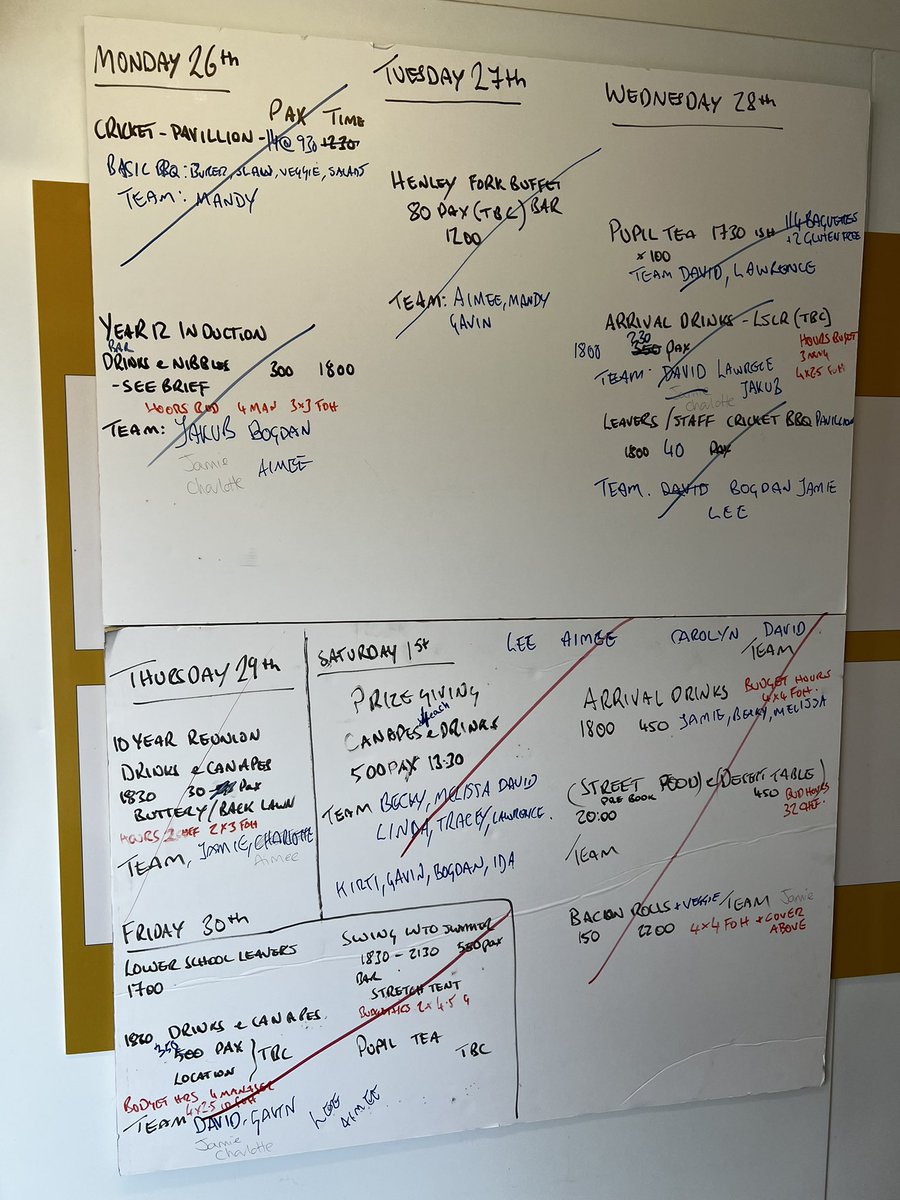 MONDAY 26th
PAX TIME
CRICKET - PAVILLION - 14@ 930 1230
BASIC BBQ: BURER, SLAW, VEGGIE, SALADS
TEAM: MANDY
YEAR 12 INDUCTION
BAR
DRINKS & NIBBLES 300 1800
- SEE BRIEF
HOURS BUD 4 MAN 3x3 FOH
TEAM: JAKUB BOGDAN
Jamie
Charlotte AIMEE
TUESDAY 27th
HENLEY FORK BUFFET
80 PAX (TBC) BAR
1200
TEAM: AIMEE, MANDY
GAVIN
WEDNESDAY 28th
PUPIL TEA 1730 ISH 114 BAGUETTES
+ 2 GLUTEN FREE
x 100
TEAM DAVID, LAWRENCE
ARRIVAL DRINKS - LSLR (TBC)
1800 230 350 PAX
HOURS BUGET
3 MNG
4x25 FOH
TEAM: DAVID LAWRECE
JAKUB
Jamie
Charlotte
LEAVERS / STAFF CRICKET BBQ PAVILION
1800 40 PAX
TEAM. DAVID BOGDAN JAMIE
LEE
THURSDAY 29th
10 YEAR REUNION
DRINKS & CANAPES
1830 30 PAX
BUTTERY / BACK LAWN
HOURS 2 CHEF 2x3 FOH
TEAM, JAMIE, CHARLOTTE
Aimee
SATURDAY 1st
PRIZE GIVING
each
CANAPES & DRINKS
500 PAX 13.30
TEAM BECKY, MELISSA DAVID
LINDA, TRACEY, LAWRENCE.
KIRTI, GAVIN, BOGDAN, IDA
LEE AIMEE CAROLYN DAVID
TEAM
ARRIVAL DRINKS BUDGET HOURS
4x4 FOH.
1800 450 JAMIE, BECKY, MELISSA
(STREET FOOD) & (DESERT TABLE)
PRE BOOK 450
20:00
BUD HOURS
32 CHEF.
TEAM
BACON ROLLS + VEGGIE TEAM Jamie
150 2200 4x4 FOH + COVER
ABOVE
FRIDAY 30th
LOWER SCHOOL LEAVERS
1700
1830 DRINKS & CANAPES.
350
500 PAX } TBC
LOCATION
BUDGET HRS 4 MANAGER
4x25 FOH
TEAM DAVID - GAVIN
Jamie
Charlotte
LEE
AIMEE
SWING INTO SUMMER
1830 - 2130 550 PAX
BAR
STRETCH TENT
2 x 4.5
PUPIL TEA
TBC